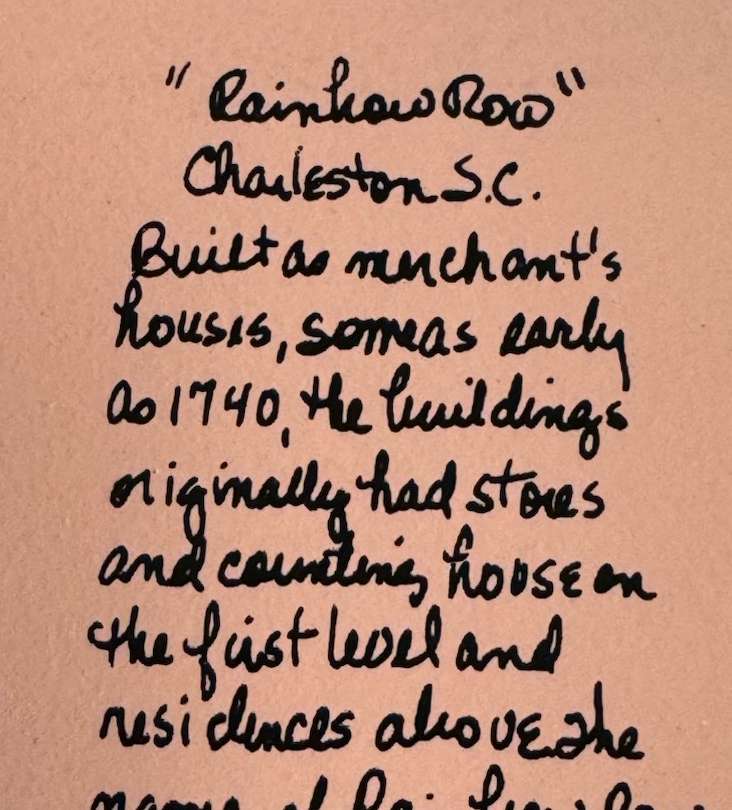 "Rainbow Row"
Charleston S.C.
Built as merchant's
houses, some as early
as 1740, the buildings
originally had stores
and counting house on
the first level and
residences above. The
name of Rainbow